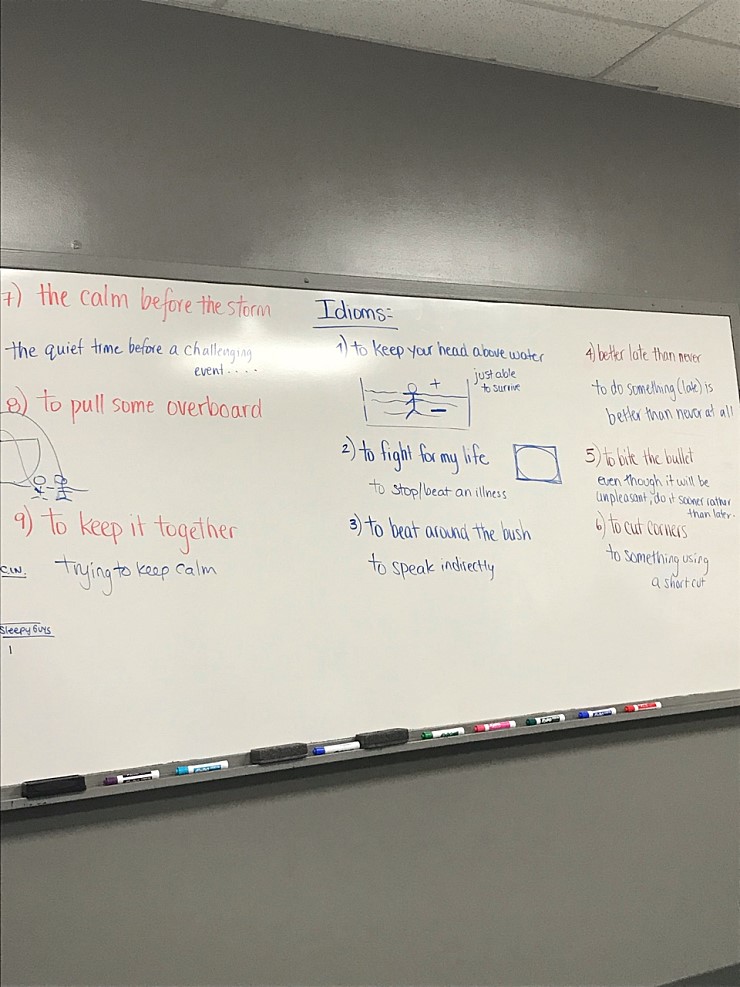 Idioms:
1) to keep your head above water
just able
to survive
+
−
2) to fight for my life
to stop/beat an illness
3) to beat around the bush
to speak indirectly
4) better late than never
to do something (late) is
better than never at all
5) to bite the bullet
even though it will be
unpleasant, do it sooner rather
than later.
6) to cut corners
to something using
a short cut
7) the calm before the storm
the quiet time before a challenging
event....
8) to pull some overboard
9) to keep it together
C.W.
trying to keep calm
Sleepy Guys
1